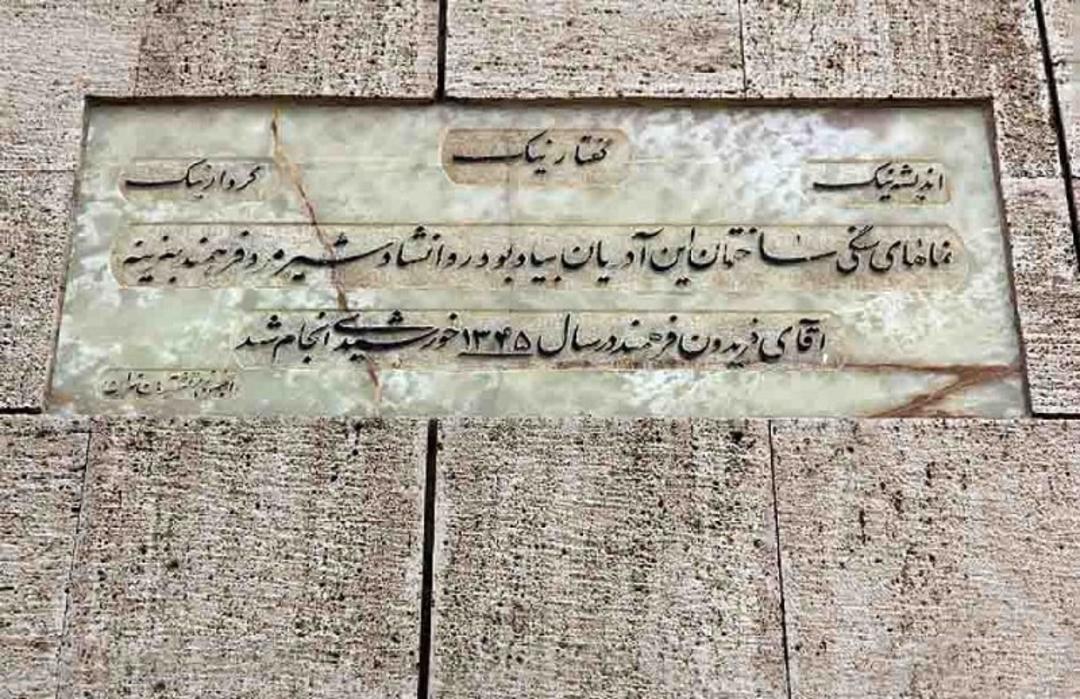 گفتار نیک
اندیشه نیک
کردار نیک
نماهای سنگی ساختمان این آدریان بیاد بود روانشاد شیرمرد فرهمند بهزینه
آقای فریدون فرهمند در سال ۱۳۴۵ خورشیدی انجام شد